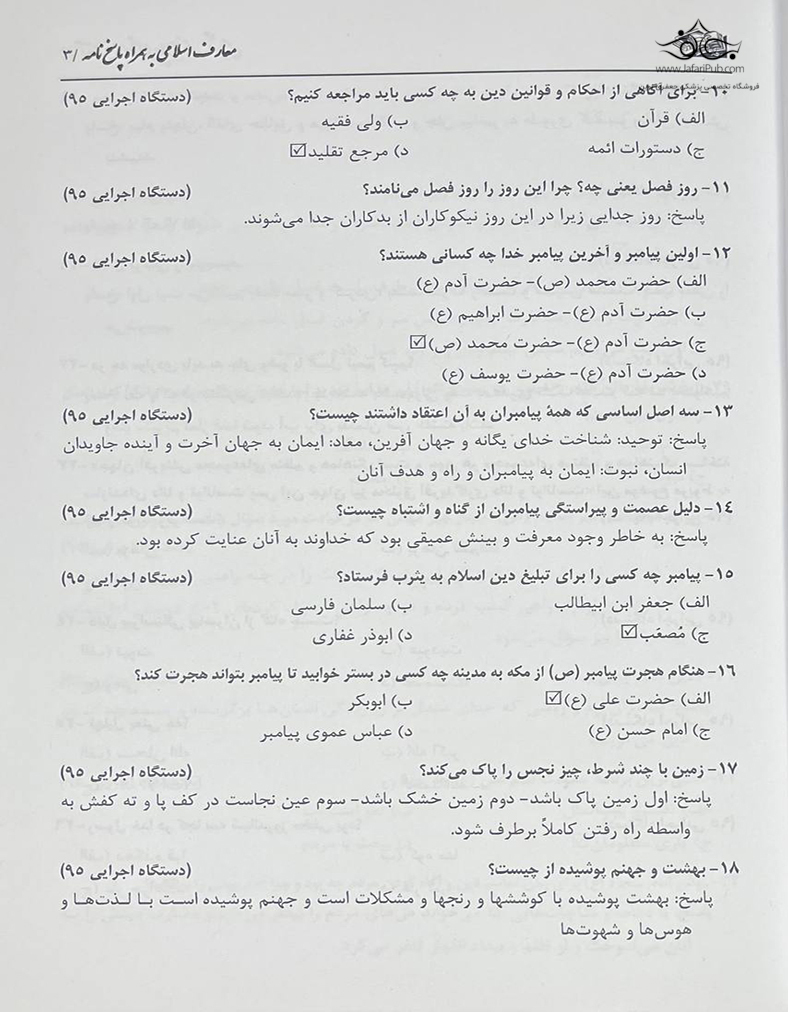 معارف اسلامی به همراه پاسخ نامه / ۳
www.JafariPub.com
فروشگاه تخصصی پزشکی جعفری
۱۰- برای آگاهی از احکام و قوانین دین به چه کسی باید مراجعه کنیم؟ (دستگاه اجرایی ۹۵)
الف) قرآن ب) ولی فقیه
ج) دستورات ائمه د) مرجع تقلید ☑
۱۱- روز فصل یعنی چه؟ چرا این روز را روز فصل می‌نامند؟ (دستگاه اجرایی ۹۵)
پاسخ: روز جدایی زیرا در این روز نیکوکاران از بدکاران جدا می‌شوند.
۱۲- اولین پیامبر و آخرین پیامبر خدا چه کسانی هستند؟ (دستگاه اجرایی ۹۵)
الف) حضرت محمد (ص)- حضرت آدم (ع)
ب) حضرت آدم (ع)- حضرت ابراهیم (ع)
ج) حضرت آدم (ع)- حضرت محمد (ص) ☑
د) حضرت آدم (ع)- حضرت یوسف (ع)
۱۳- سه اصل اساسی که همهٔ پیامبران به آن اعتقاد داشتند چیست؟ (دستگاه اجرایی ۹۵)
پاسخ: توحید: شناخت خدای یگانه و جهان آفرین، معاد: ایمان به جهان آخرت و آینده جاویدان
انسان، نبوت: ایمان به پیامبران و راه و هدف آنان
۱۴- دلیل عصمت و پیراستگی پیامبران از گناه و اشتباه چیست؟ (دستگاه اجرایی ۹۵)
پاسخ: به خاطر وجود معرفت و بینش عمیقی بود که خداوند به آنان عنایت کرده بود.
۱۵- پیامبر چه کسی را برای تبلیغ دین اسلام به یثرب فرستاد؟ (دستگاه اجرایی ۹۵)
الف) جعفر ابن ابیطالب ب) سلمان فارسی
ج) مُصعَب ☑ د) ابوذر غفاری
۱۶- هنگام هجرت پیامبر (ص) از مکه به مدینه چه کسی در بستر خوابید تا پیامبر بتواند هجرت کند؟
الف) حضرت علی (ع) ☑ ب) ابوبکر
ج) امام حسن (ع) د) عباس عموی پیامبر
۱۷- زمین با چند شرط، چیز نجس را پاک می‌کند؟ (دستگاه اجرایی ۹۵)
پاسخ: اول زمین پاک باشد- دوم زمین خشک باشد- سوم عین نجاست در کف پا و ته کفش به
واسطه راه رفتن کاملاً برطرف شود.
۱۸- بهشت و جهنم پوشیده از چیست؟ (دستگاه اجرایی ۹۵)
پاسخ: بهشت پوشیده با کوششها و رنجها و مشکلات است و جهنم پوشیده است با لذت‌ها و
هوس‌ها و شهوت‌ها